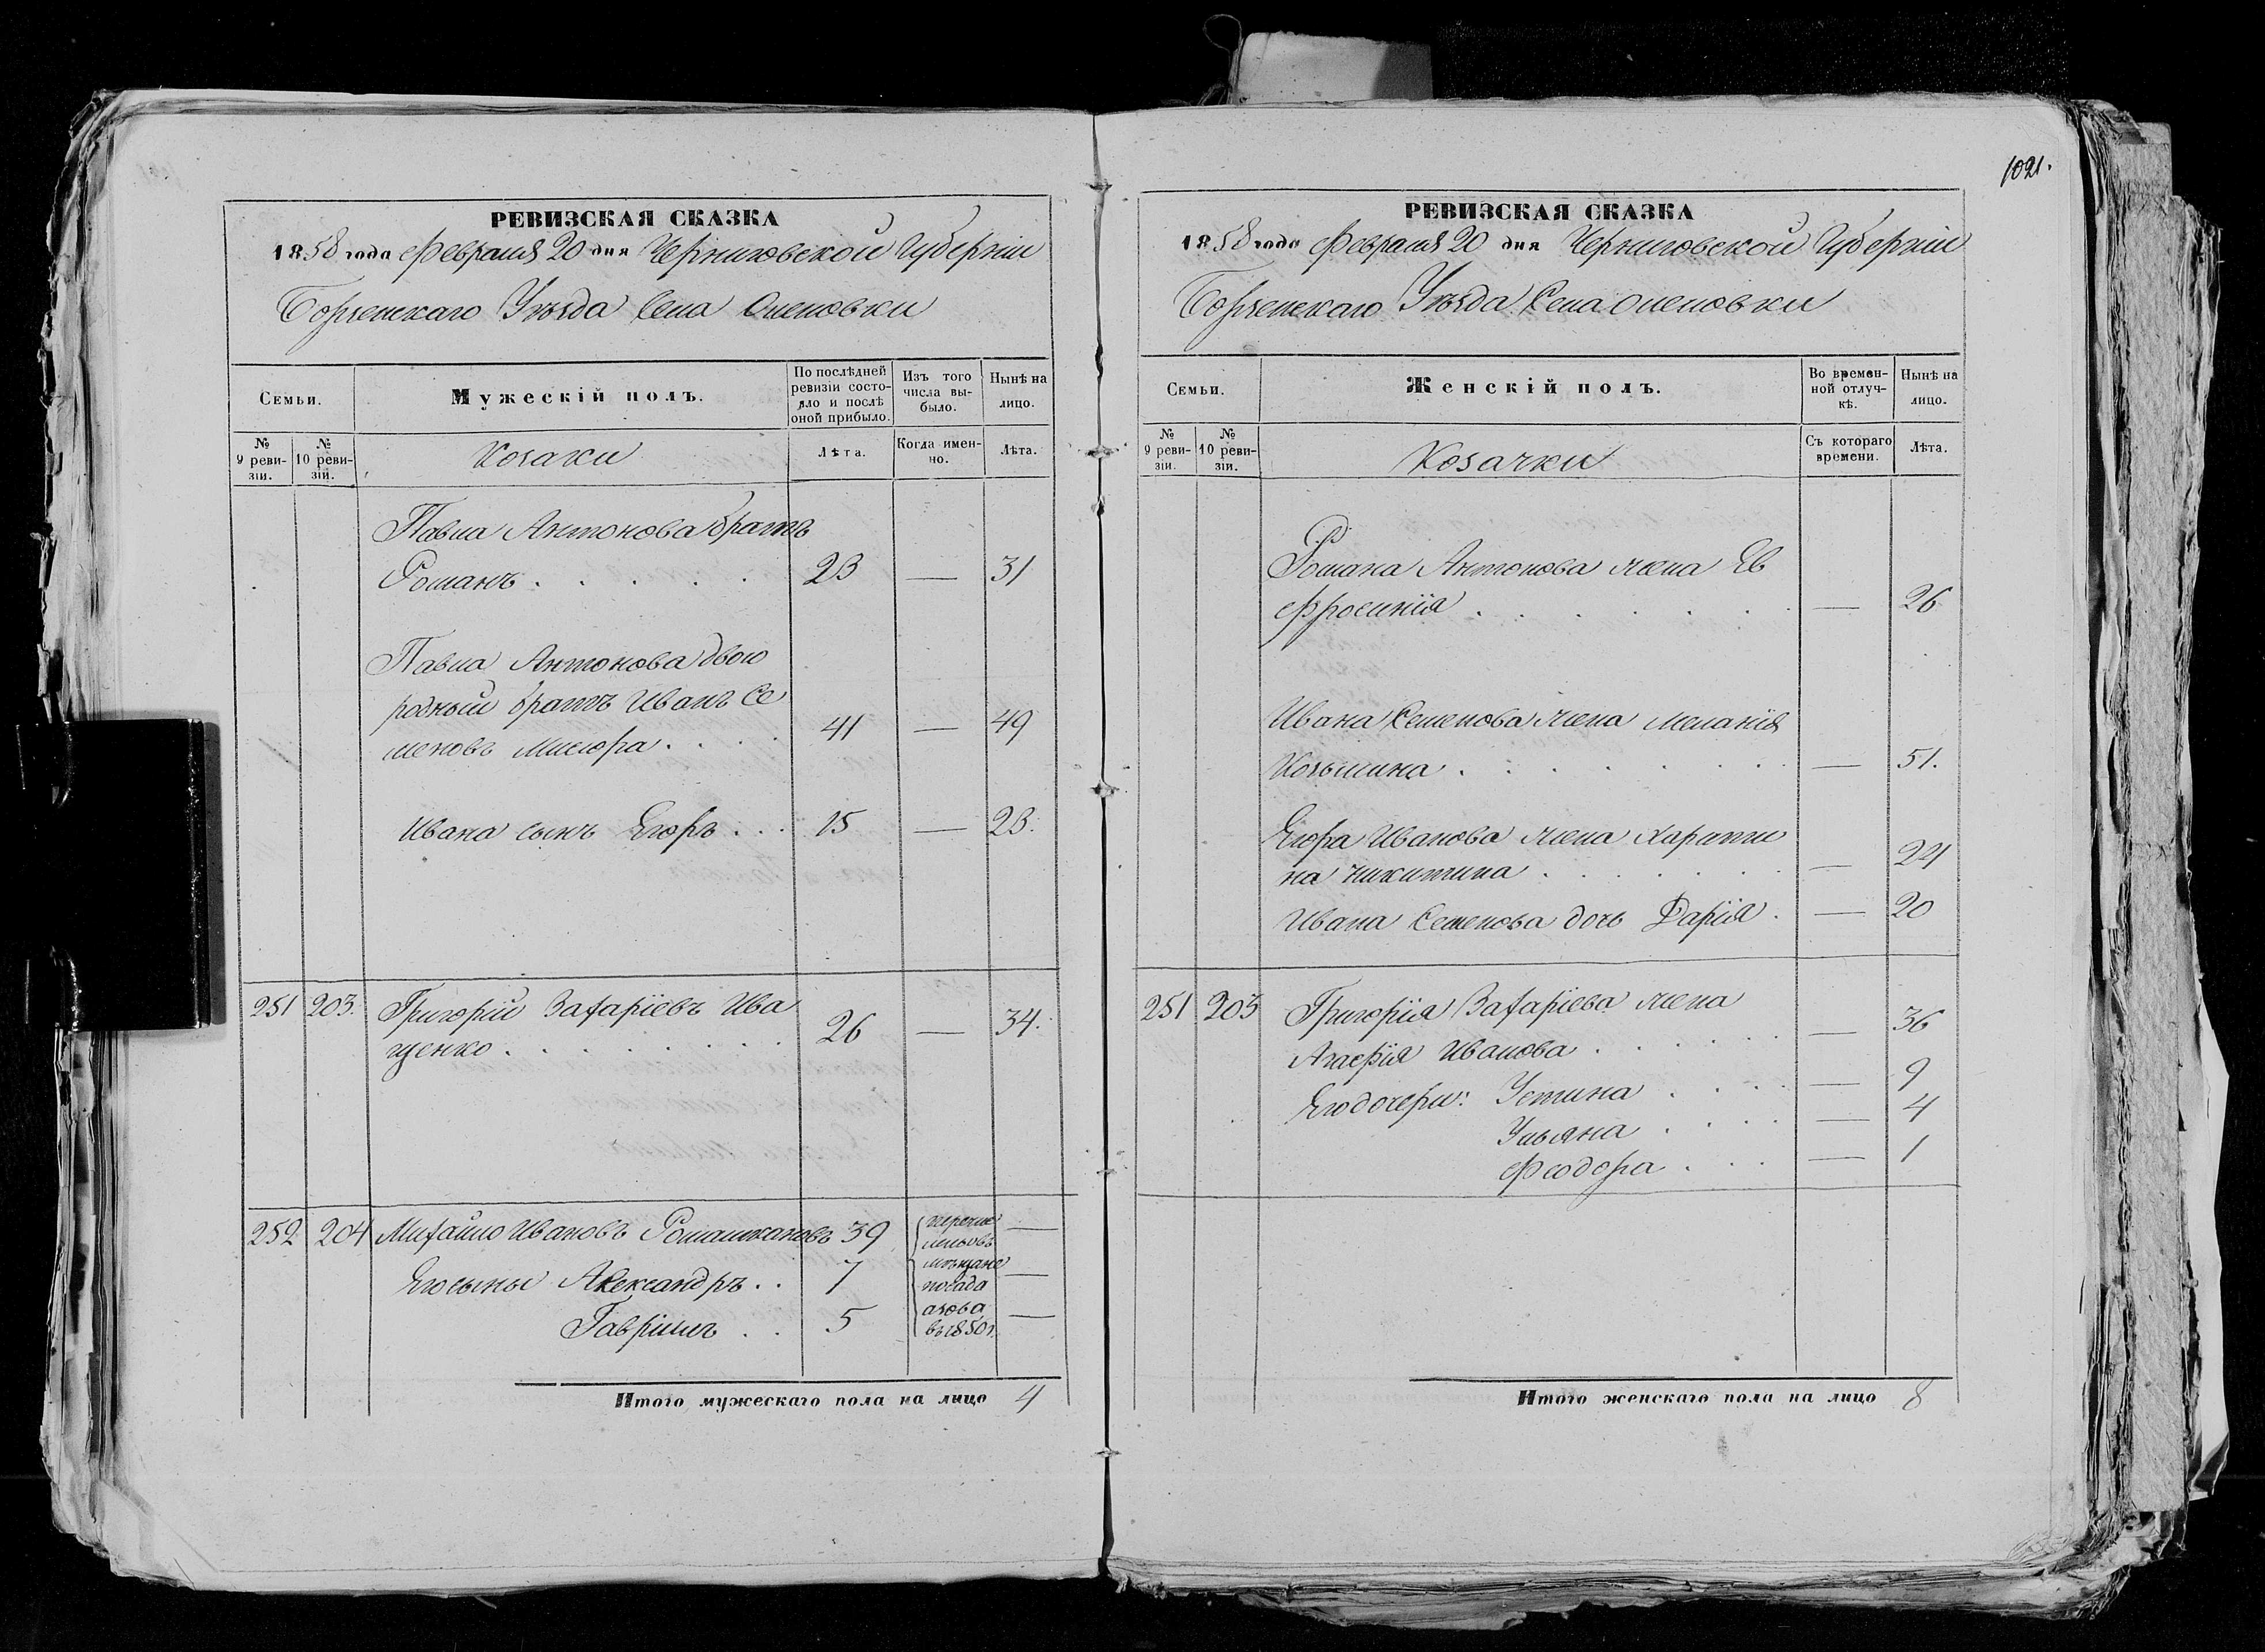 1021.
РЕВИЗСКАЯ СКАЗКА
1858 года Февраля 20 дня Черниговской Губерніи
Борзенскаго Уѣзда Села Оленовки
Семьи.
Мужескій полъ.
По послѣдней ревизіи состояло и послѣ оной прибыло.
Изъ того числа выбыло.
Нынѣ на лицо.
№ 9 ревизіи.
№ 10 ревизіи.
Козаки
Лѣта.
Когда именно.
Лѣта.
Павла Антонова братъ
Романъ . . . . . 23 — 31
Павла Антонова двою
родный братъ Иванъ Се
меновъ Мисюра . . . . 41 — 49
Ивана сынъ Егоръ . . . 15 — 23.
251 203. Григорій Захаріевъ Ива
щенко . . . . . . . . 26 — 34.
252 204 Михайло Ивановъ Ромашкановъ 39 —
Его сыны Александръ . . 7 —
Гавріилъ . . 5 —
перечис
ленъ въ
мѣщане
посада
азова
въ 1850 г.
Итого мужескаго пола на лицо 4
РЕВИЗСКАЯ СКАЗКА
1858 года Февраля 20 дня Черниговской Губерніи
Борзенскаго Уѣзда Села Оленовки
Семьи.
Женскій полъ.
Во временной отлучкѣ.
Нынѣ на лицо.
№ 9 ревизіи.
№ 10 ревизіи.
Козачки
Съ котораго времени.
Лѣта.
Романа Антонова жена Ев
фросинія . . . . . . . — 26
Ивана Семенова жена Меланія
Козьмина . . . . . . . . — 51.
Егора Иванова жена Харити
на Никитина . . . . . . — 24
Ивана Семенова дочь Дарія . — 20
251 203 Григорія Захаріева жена
Агафія Иванова . . . . . — 36
Его дочери: Устина . . . . — 9
Ульяна . . . . — 4
Феодора . . . — 1
Итого женскаго пола на лицо 8